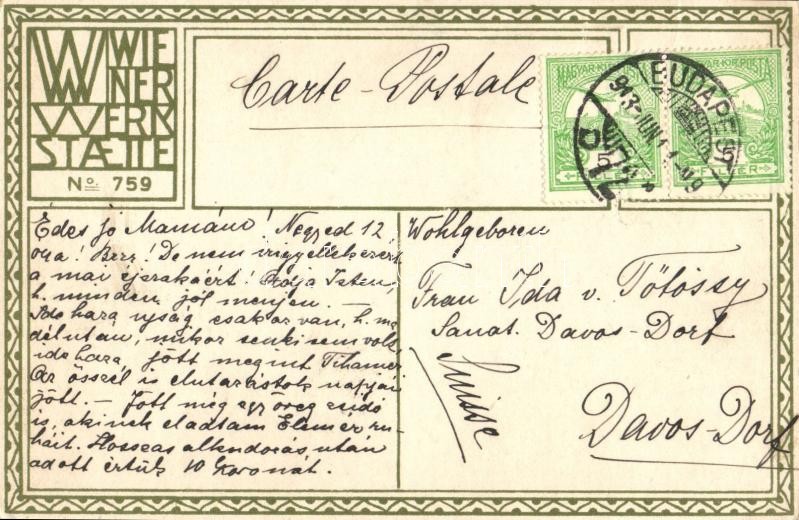 WIE
NER
WERK
STAETTE
No. 759
Carte-Postale
MAGYAR·KIR·POSTA
BUDAPEST
913 JUN
5
FILLÉR
Édes jó Mamám! Negyed 12
óra! Brrr! De nem irigyellek ezért
a mai éjszakáért! Adja Isten,
h. minden jól menjen. —
Ide haza ujság csak az van, h. ma
délután, mikor senki sem volt
ide haza, jött megint Tihamér
Az ősszel is elutazástok napján
jött. — Jött még egy öreg zsidó
is, akinek eladtam Elemér ru-
háit. Hosszas alkudozás után
adott értük 10 koronát.
Wohlgeboren
Frau Ida v. Tötössy
Sanat. Davos-Dorf
Suisse
Davos-Dorf